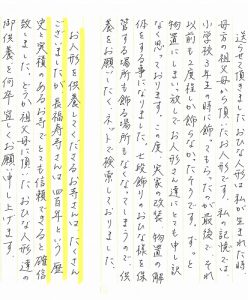 送らせて頂きましたひな人形は、私が生まれた時
母方の祖父母から頂きましたお人形です。私の記憶では
小学校3年生の時に飾ってもらったのが最後で、それ
以前も2度程しか飾らなかったそうです。ずっと
物置にしまい放しでお人形さん達にとても申し訳
なく思っております。この度、実家の改装・物置の解
体をする事になりました。七段飾りのおひな様を保
管する場所も飾る場所もなくなってしまうので、供
養をお願いしたくネットで検索しておりました。
お人形を供養してくださるお寺さんは、たくさん
ございましたが長福寿寺さんは四百年という歴
史と実積のあるお寺でとても信頼できると確信
致しました。どうか祖父母から頂いたおひな人形達の
御供養を何卒宜しくお願い申し上げます。